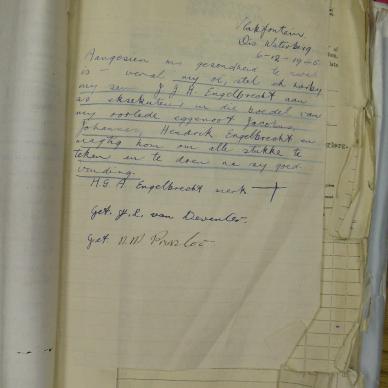 Vlakfontein
Dis. Waterberg
6-12-19
Aangesien my gesondheid te swak
is veral my oë, stel ek hierby
my seun J. J. A. Engelbrecht aan
as eksekuteur in die boedel van
my oorlede eggenoot Jacobus
Johannes Hendrik Engelbrecht en
magtig hom om alle stukke te
teken en te doen na sy goed-
vinding.
H. G. A Engelbrecht merk
Get. van Deventer.
Get Prinsloo